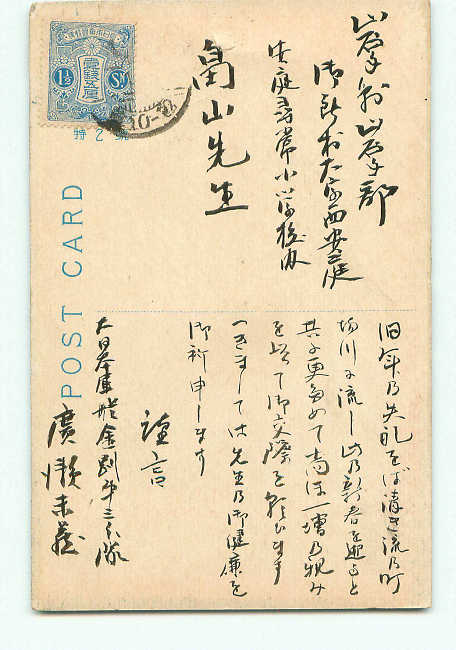 岩手県岩手郡
御所村大字西安庭
安庭尋常小学校内
畠山先生
1½
Sn
特2號
POST CARD
旧年乃失礼をば清き流乃町
場川に流し此乃新春を迎ると
共に更ためて尚ほ一増乃親み
を以て御交際を願ひます
つきましては先生乃御健康を
御祈申します
謹言
大日本軍艦金剛第三分隊
廣瀬末蔵